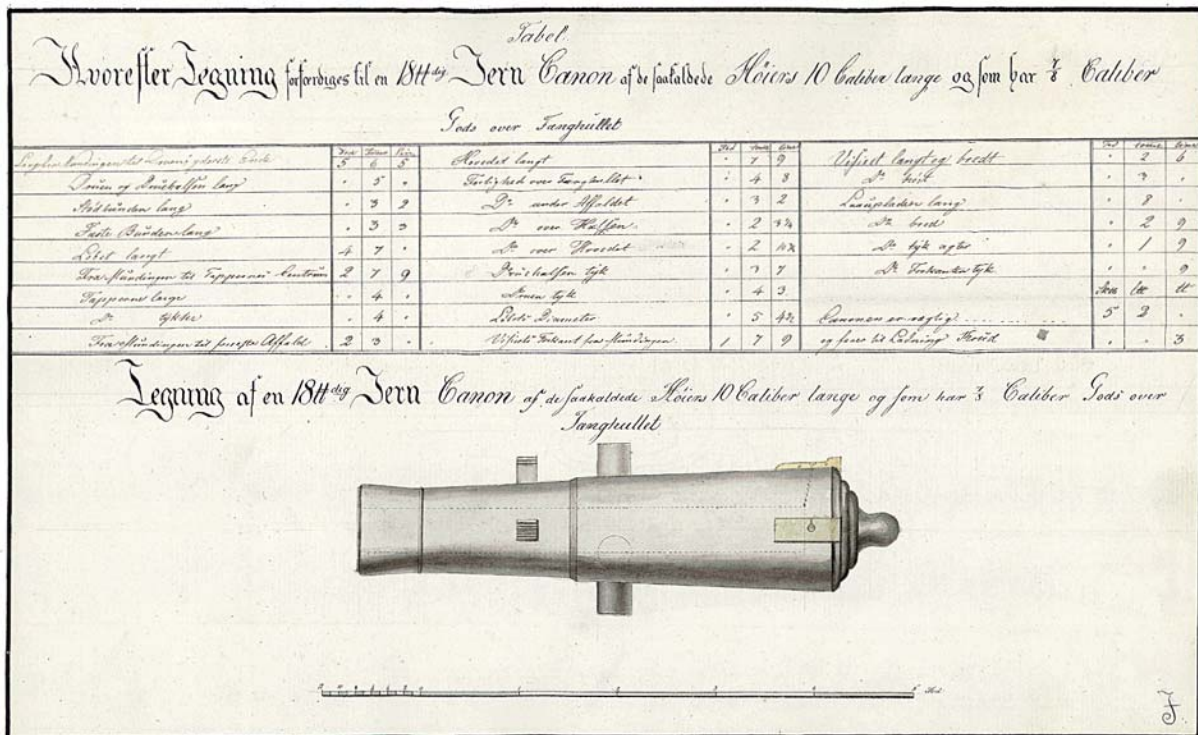 Tabel
Hvorefter Tegning forfærdiges til en 18 ℔dig Jern Canon af de saakaldede Høiers 10 Caliber lange og som har 7/8 Caliber
Gods over Fænghullet
Fod Tomer Linier
Mundingen til Druens yderste Ende 5 6 5
Druen og Druehalsen lang . 5 .
Stödbunden lang . 3 2
Faste Bunden lang . 3 3
Löbet langt 4 7 .
Fra Mundingen til Tappernes Centrum 2 7 9
Tapperne lange . 4 .
Do tykke . 4 .
Fra Mundingen til forreste Affald 2 3 .
Fod Tomer Linier
Hovedet langt . 7 9
over Fænghullet . 4 8
Do under Affaldet . 3 2
Do over Halsen . 2
Do over Hovedet . 2
Druehalsen tyk . 3 7
Druen tyk . 4 3
Löbets Diameter . 5 4½
Visirets Forkant fra Mundingen 1 7 9
Fod Tomer Linier
Visiret langt og bredt . 2 6
Do höit . 3 .
lang . 8 .
Do bred . 2 9
Do tyk agter . 1 9
Do Forkanten tyk . . 9
℔ ℔
Canonen er vægtig 5 2 .
og föres til Ladning Krud . . 3
Tegning af en 18 ℔dig Jern Canon af de saakaldede Høiers 10 Caliber lange og som har 7/8 Caliber Gods over
Fænghullet
Fod
F